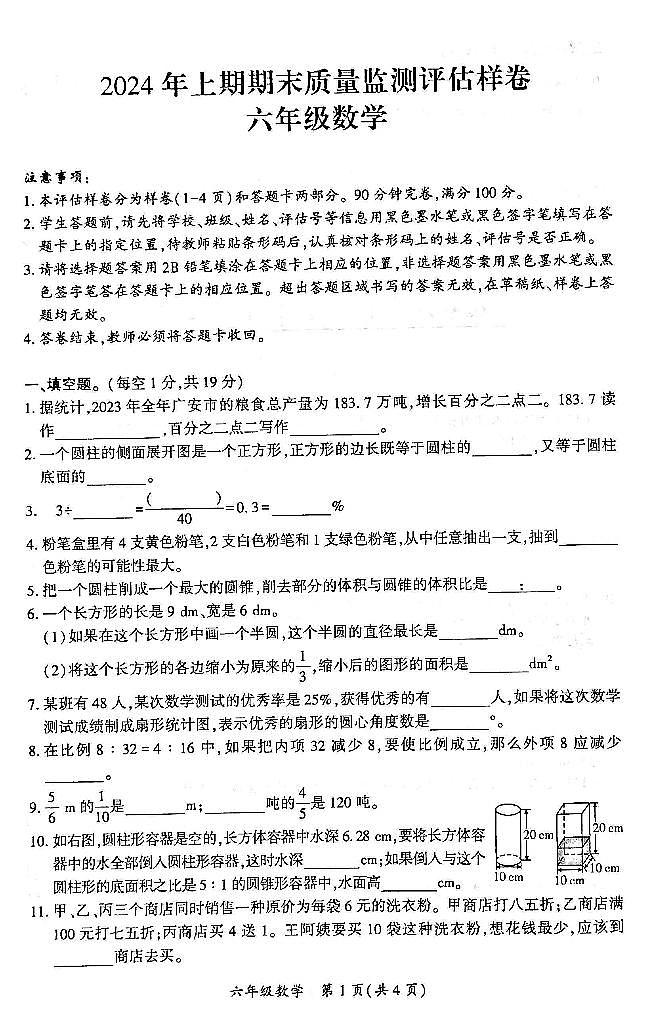 2024年上期期末质量监测评估样卷
六年级数学
注意事项:
1.本评估样卷分为样卷(1-4页)和答题卡两部分。90分钟完卷,满分100分。
2.学生答题前,请先将学校、班级、姓名、评估号等信息用黑色墨水笔或黑色签字笔填写在答
题卡上的指定位置,待教师粘贴条形码后,认真核对条形码上的姓名、评估号是否正确。
3.请将选择题答案用2B铅笔填涂在答题卡上相应的位置,非选择题答案用黑色墨水笔或黑
色签字笔答在答题卡上的相应位置。超出答题区域书写的答案无效,在草稿纸、样卷上答
题均无效。
4.答卷结束,教师必须将答题卡收回。
一、填空题。(每空1分,共19分)
1.据统计,2023年全年广安市的粮食总产量为183.7万吨,增长百分之二点二。183.7读
作________,百分之二点二写作________。
2.一个圆柱的侧面展开图是一个正方形,正方形的边长既等于圆柱的________,又等于圆柱
底面的________。
3. 3÷________=(  )/40=0.3=________%
4.粉笔盒里有4支黄色粉笔,2支白色粉笔和1支绿色粉笔,从中任意抽出一支,抽到________
色粉笔的可能性最大。
5.把一个圆柱削成一个最大的圆锥,削去部分的体积与圆锥的体积比是____:____。
6.一个长方形的长是9 dm、宽是6 dm。
(1)如果在这个长方形中画一个半圆,这个半圆的直径最长是________dm。
(2)将这个长方形的各边缩小为原来的1/3,缩小后的图形的面积是________dm²。
7.某班有48人,某次数学测试的优秀率是25%,获得优秀的有________人,如果将这次数学
测试成绩制成扇形统计图,表示优秀的扇形的圆心角度数是________°。
8.在比例8:32=4:16中,如果把内项32减少8,要使比例成立,那么外项8应减少
________。
9. 5/6 m的1/10是________m;________吨的4/5是120吨。
10.如右图,圆柱形容器是空的,长方体容器中水深6.28 cm,要将长方体容
器中的水全部倒入圆柱形容器,这时水深________cm;如果倒入与这个
圆柱形的底面积之比是5:1的圆锥形容器中,水面高________cm。
20 cm
10 cm
20 cm
10 cm
10 cm
11.甲、乙、丙三个商店同时销售一种原价为每袋6元的洗衣粉。甲商店打八五折;乙商店满
100元打七五折;丙商店买4送1。王阿姨要买10袋这种洗衣粉,想花钱最少,应该到
________商店去买。
六年级数学 第1页(共4页)